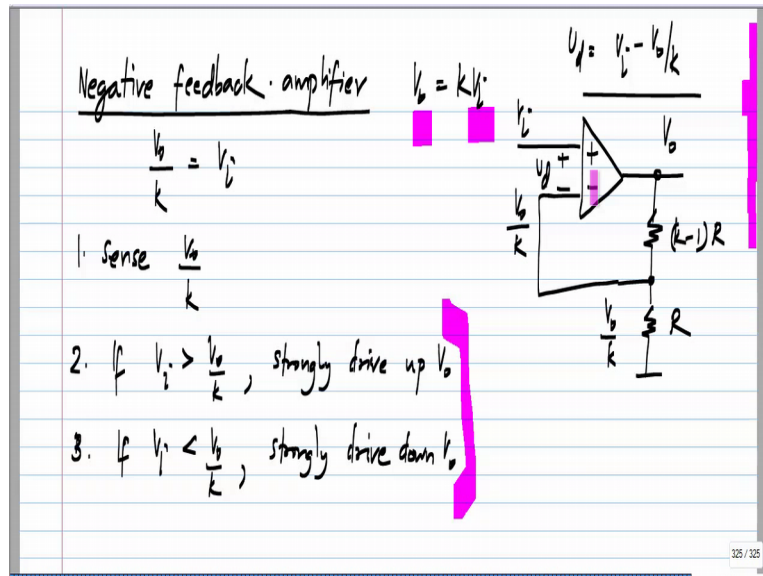 Negative feedback. amplifier
V₀ = kVᵢ
V₀/k = Vᵢ
1. Sense V₀/k
2. If Vᵢ > V₀/k, strongly drive up V₀
3. If Vᵢ < V₀/k, strongly drive down V₀
υd = Vᵢ - V₀/k
Vᵢ
V₀
υd
+
-
+
-
V₀/k
(k-1)R
V₀/k
R
325 / 325